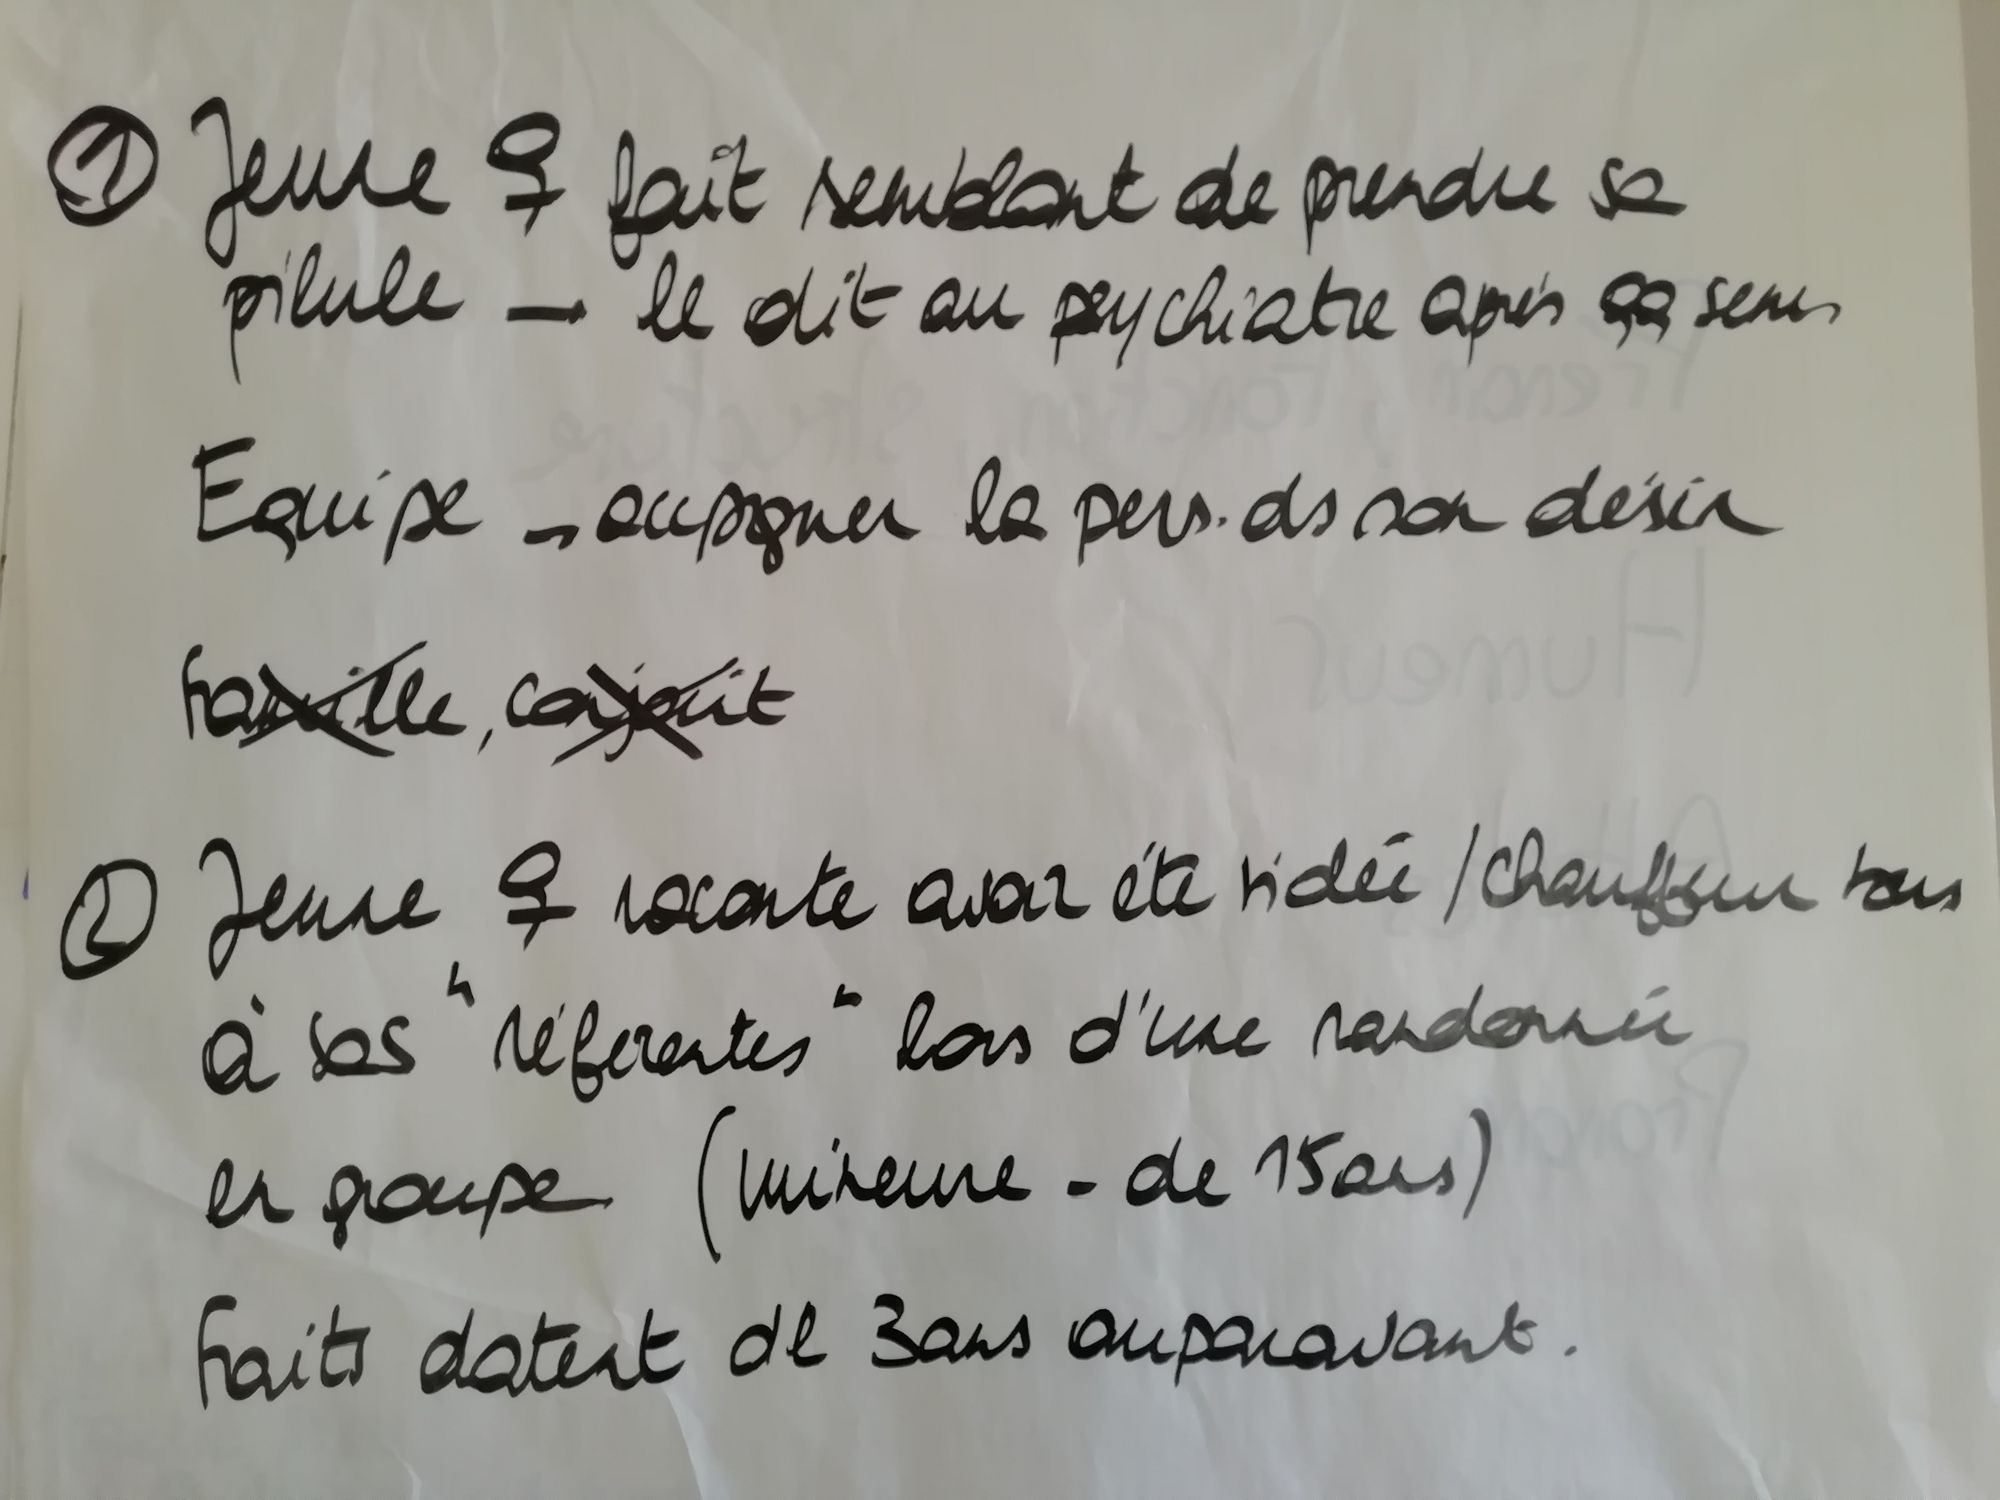 ① Jeune ♀ fait semblant de prendre sa
pilule → le dit au psychiatre après qq sem.
Equipe → accompagner la pers. ds son désir
Famille, conjoint
② Jeune ♀ raconte avoir été violée / chauffeur
à ses "référentes" lors d'une randonnée
en groupe (mineure - de 15 ans)
Faits datent de 3 ans auparavant.
Prénom, fonction, structure
Humeur